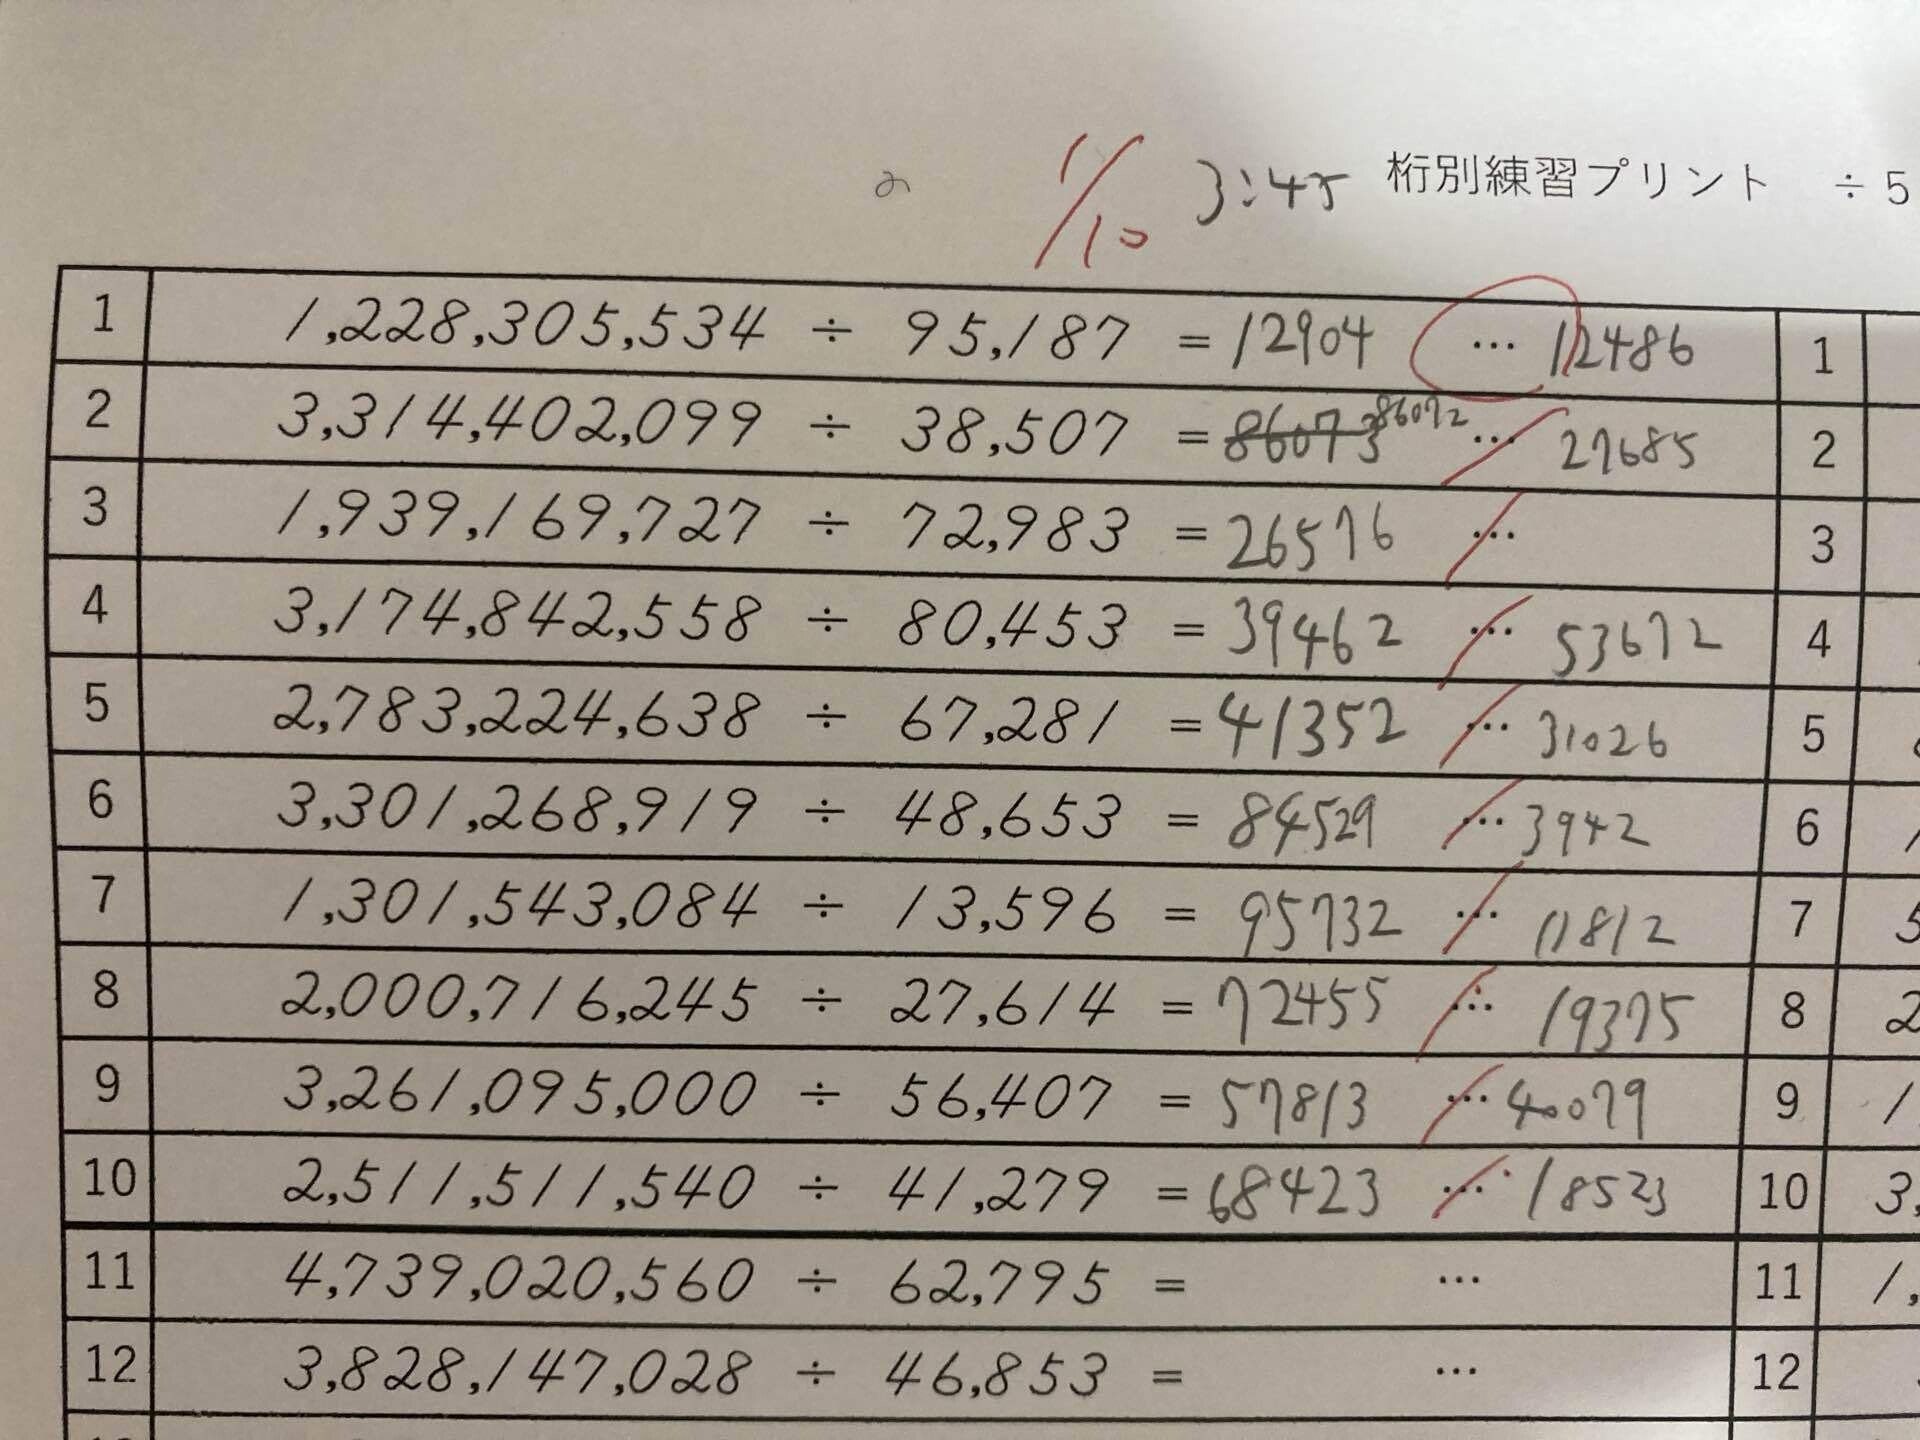 の 1/10 3:45 桁別練習プリント ÷5
1 1,228,305,534 ÷ 95,187 =12904 … 12486 1
2 3,314,402,099 ÷ 38,507 =86073 86072 … 27685 2
3 1,939,169,727 ÷ 72,983 =26576 … 3
4 3,174,842,558 ÷ 80,453 =39462 … 53672 4
5 2,783,224,638 ÷ 67,281 =41352 … 31026 5
6 3,301,268,919 ÷ 48,653 =84529 … 3942 6
7 1,301,543,084 ÷ 13,596 =95732 … 11812 7 5
8 2,000,716,245 ÷ 27,614 =72455 … 19375 8 2
9 3,261,095,000 ÷ 56,407 =57813 … 40079 9 1
10 2,511,511,540 ÷ 41,279 =68423 … 18523 10 3,
11 4,739,020,560 ÷ 62,795 = … 11 1,
12 3,828,147,028 ÷ 46,853 = … 12